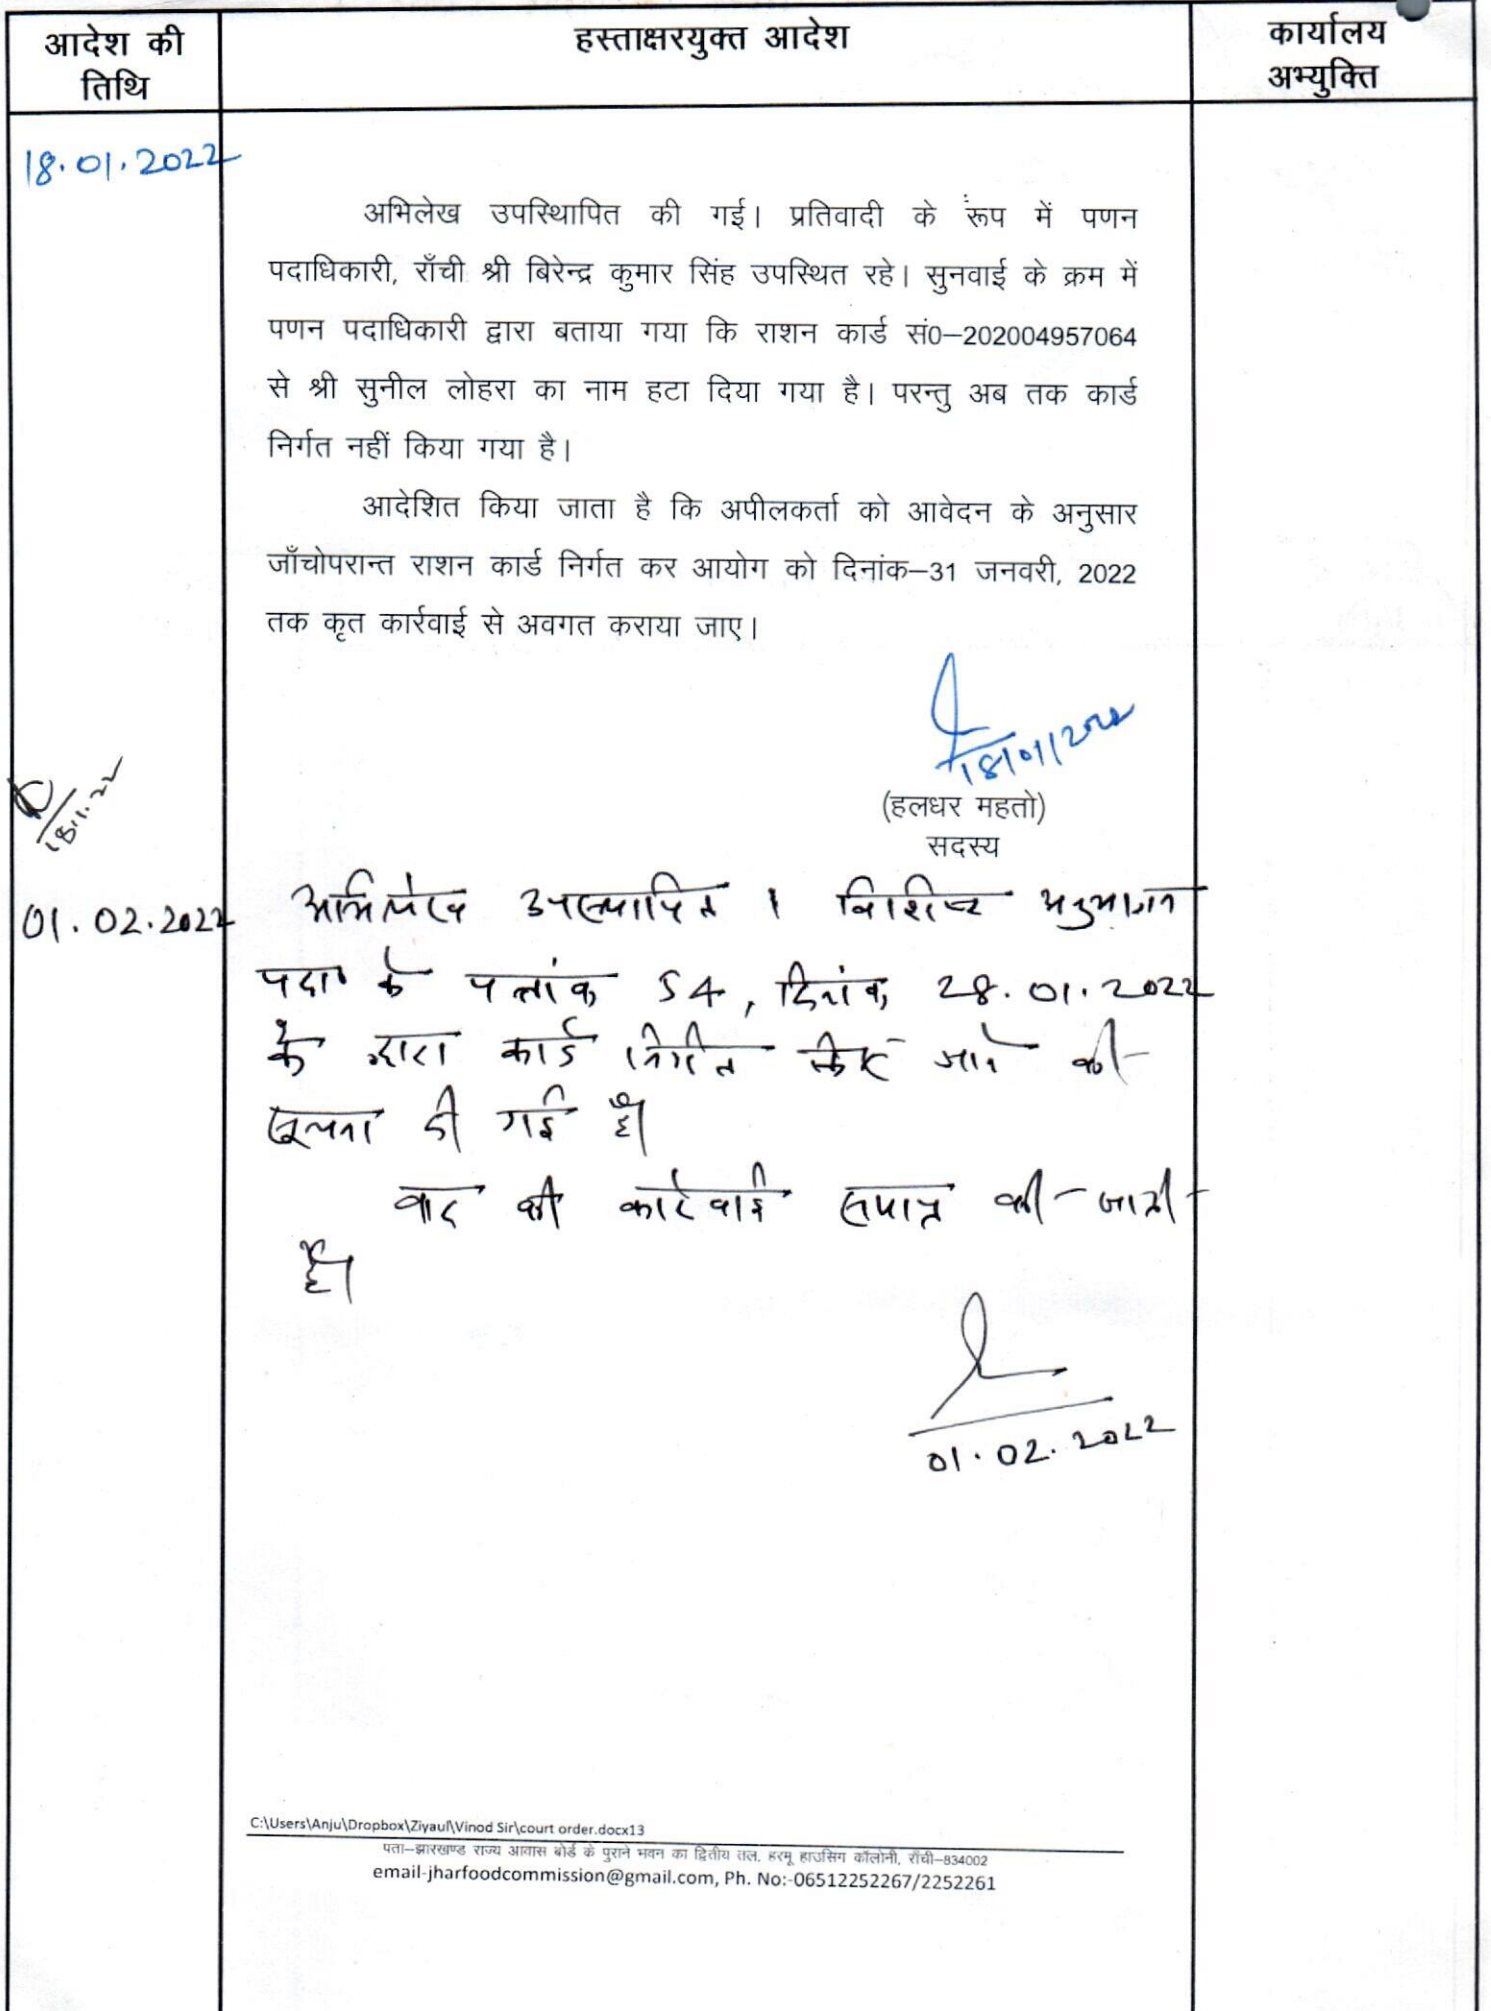 आदेश की
तिथि
हस्ताक्षरयुक्त आदेश
कार्यालय
अभ्युक्ति
18.01.2022
अभिलेख उपस्थिापित की गई। प्रतिवादी के रूप में पणन
पदाधिकारी, राँची श्री बिरेन्द्र कुमार सिंह उपस्थित रहे। सुनवाई के क्रम में
पणन पदाधिकारी द्वारा बताया गया कि राशन कार्ड सं0–202004957064
से श्री सुनील लोहरा का नाम हटा दिया गया है। परन्तु अब तक कार्ड
निर्गत नहीं किया गया है।
आदेशित किया जाता है कि अपीलकर्ता को आवेदन के अनुसार
जाँचोपरान्त राशन कार्ड निर्गत कर आयोग को दिनांक–31 जनवरी, 2022
तक कृत कार्रवाई से अवगत कराया जाए।
18/01/2022
(हलधर महतो)
सदस्य
18.1.22
01.02.2022 अभिलेख उपस्थापित । विशिष्ट अनुभाजन
पदा० के पत्रांक 54, दिनांक 28.01.2022
के द्वारा कार्ड निर्गत किए जाने की
सूचना दी गई है।
वाद की कार्रवाई समाप्त की जाती
है।
01.02.2022
C:\Users\Anju\Dropbox\Ziyaul\Vinod Sir\court order.docx13
पता–झारखण्ड राज्य आवास बोर्ड के पुराने भवन का द्वितीय तल, हरमू हाउसिंग कॉलोनी, राँची–834002
email-jharfoodcommission@gmail.com, Ph. No:-06512252267/2252261